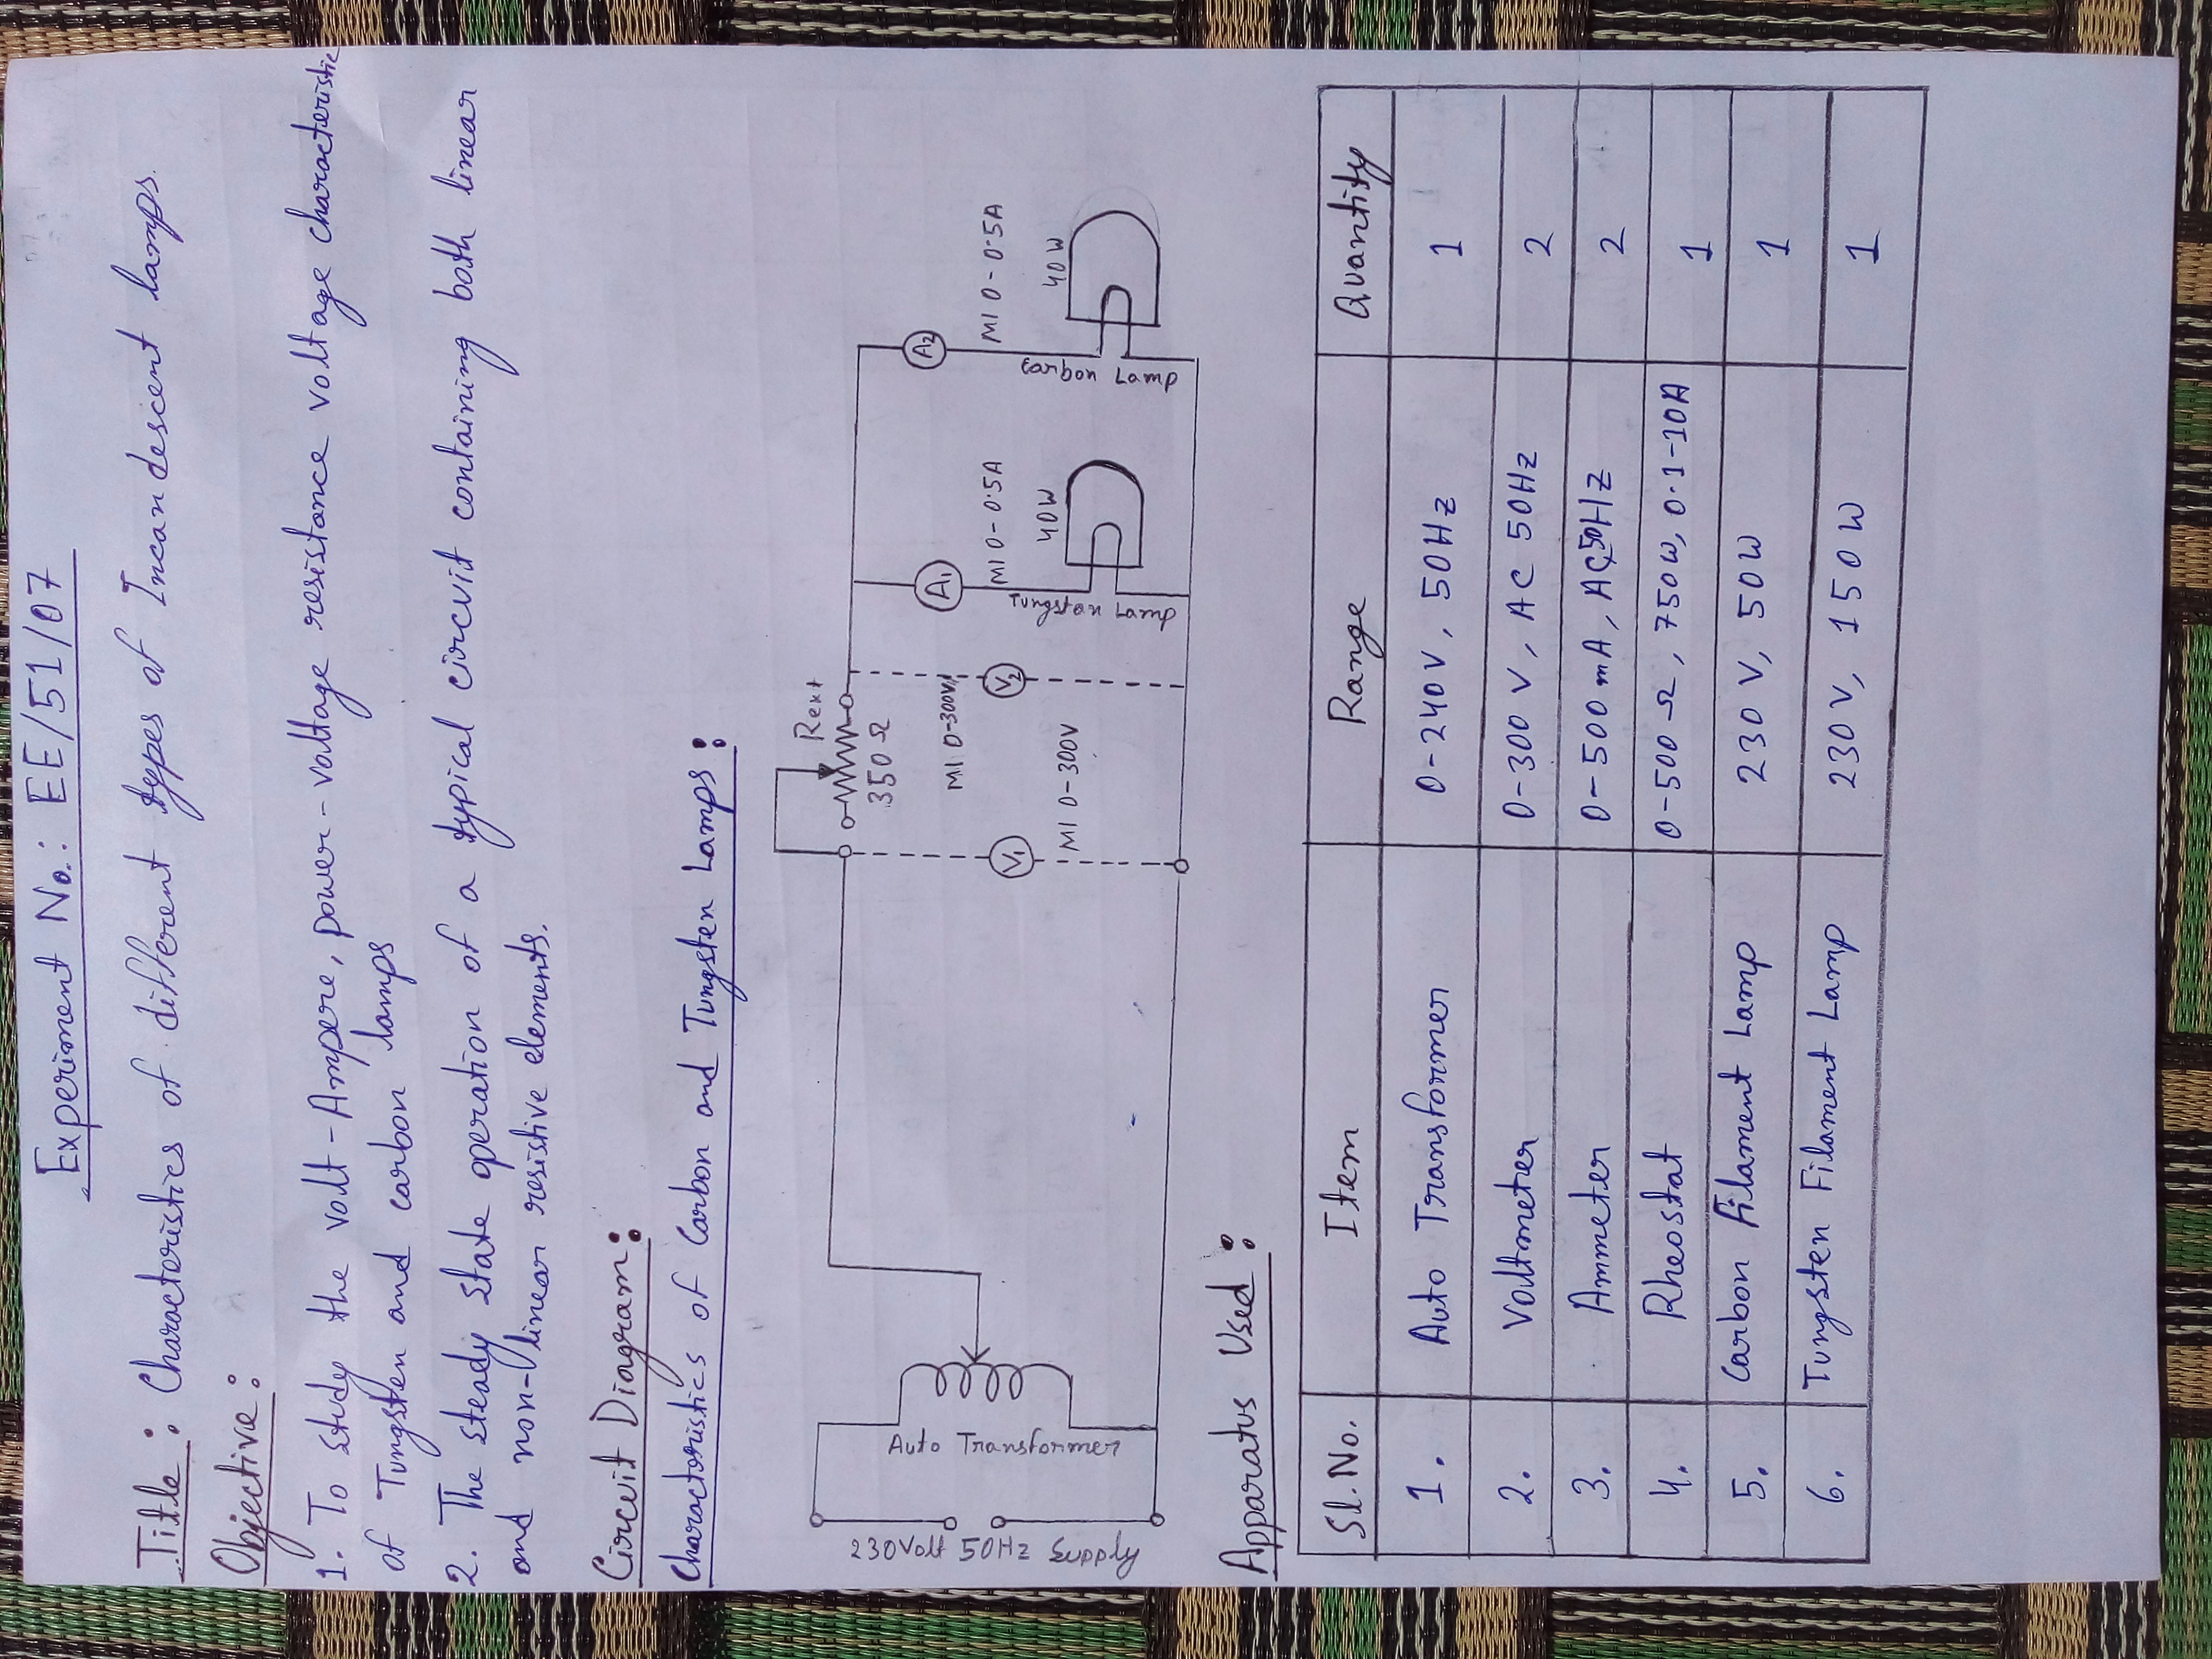 Experiment No.: EE/51/07
Title: Characteristics of different types of Incandescent lamps.
Objective:
1. To study the volt-Ampere, power-voltage resistance voltage characteristic
of Tungsten and carbon lamps
2. The steady state operation of a typical circuit containing both linear
and non-linear resistive elements.
Circuit Diagram:
Characteristics of Carbon and Tungsten Lamps:
230Volt 50Hz Supply
Auto Transformer
Rext
350 Ω
V1
MI 0-300V
V2
MI 0-300V
A1
MI 0-0.5A
Tungsten Lamp
40W
A2
MI 0-0.5A
Carbon Lamp
40W
Apparatus Used:
Sl.No. Item Range Quantity
1. Auto Transformer 0-240V, 50Hz 1
2. Voltmeter 0-300 V, AC 50Hz 2
3. Ammeter 0-500 mA, AC,50HZ 2
4. Rheostat 0-500 Ω, 750W, 0.1-10A 1
5. Carbon Filament Lamp 230 V, 50W 1
6. Tungsten Filament Lamp 230V, 150W 1